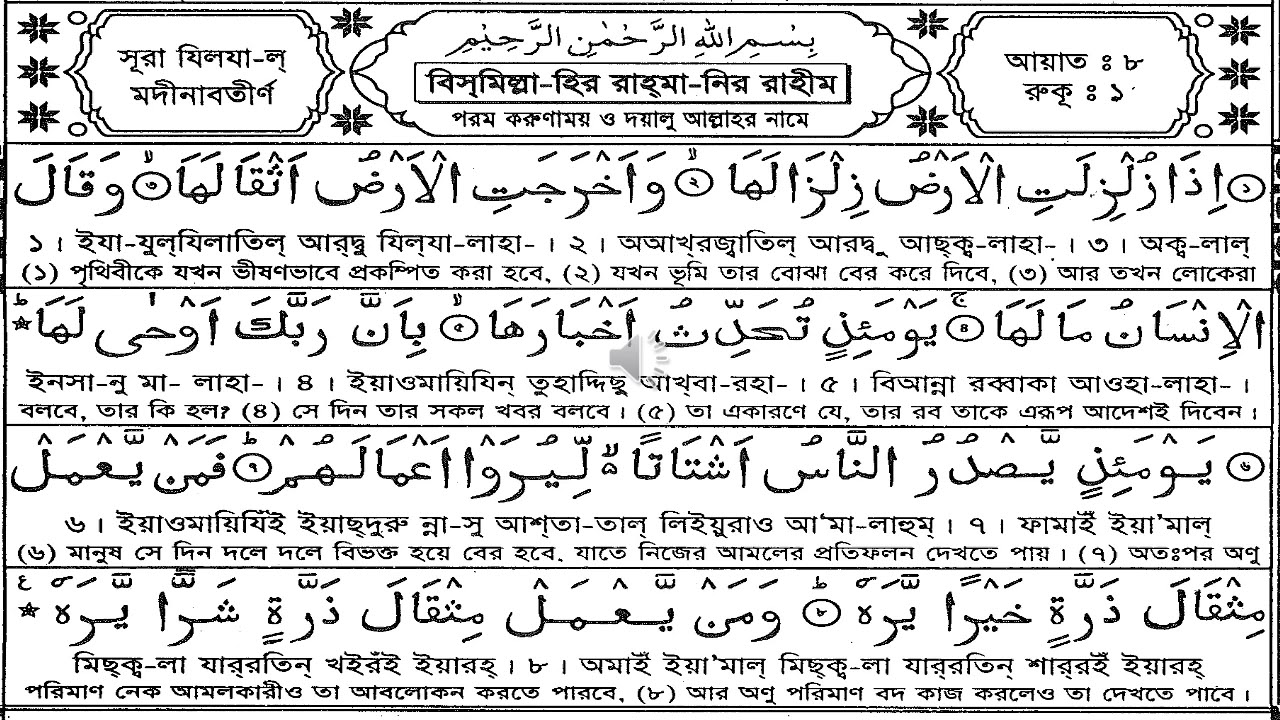 সূরা যিলযা-ল্
মদীনাবতীর্ণ
بِسْمِ اللهِ الرَّحْمٰنِ الرَّحِيْمِ
বিস্‌মিল্লা-হির রাহ্‌মা-নির রাহীম
পরম করুণাময় ও দয়ালু আল্লাহর নামে
আয়াত ঃ ৮
রুকূ ঃ ১
১ اِذَا زُلْزِلَتِ الْاَرْضُ زِلْزَالَهَا ২ وَاَخْرَجَتِ الْاَرْضُ اَثْقَالَهَا ৩ وَقَالَ
১ । ইযা-যুল্‌যিলাতিল্ আর্‌দ্বু যিল্‌যা-লাহা- । ২ । অআখ্‌রজ্বাতিল্ আর্‌দ্বু আছ্‌ক্ব-লাহা- । ৩ । অক্ব-লাল্
(১) পৃথিবীকে যখন ভীষণভাবে প্রকম্পিত করা হবে, (২) যখন ভূমি তার বোঝা বের করে দিবে, (৩) আর তখন লোকেরা
الْاِنْسَانُ مَا لَهَا ৪ يَوْمَئِذٍ تُحَدِّثُ اَخْبَارَهَا ৫ بِاَنَّ رَبَّكَ اَوْحٰى لَهَا
ইনসা-নু মা- লাহা- । ৪ । ইয়াওমায়িযিন্ তুহাদ্দিছু আখ্‌বা-রহা- । ৫ । বিআন্না রব্বাকা আওহা-লাহা- ।
বলবে, তার কি হল? (৪) সে দিন তার সকল খবর বলবে। (৫) তা একারণে যে, তার রব তাকে এরূপ আদেশই দিবেন।
৬ يَوْمَئِذٍ يَّصْدُرُ النَّاسُ اَشْتَاتًا لِّيُرَوْا اَعْمَالَهُمْ ৭ فَمَنْ يَّعْمَلْ
৬ । ইয়াওমায়িযিঁই ইয়াছ্‌দুরু ন্না-সু আশ্‌তা-তাল্ লিইয়ুরাও আ'মা-লাহুম্ । ৭ । ফামাইঁ ইয়া'মাল্
(৬) মানুষ সে দিন দলে দলে বিভক্ত হয়ে বের হবে, যাতে নিজের আমলের প্রতিফলন দেখতে পায়। (৭) অতঃপর অণু
مِثْقَالَ ذَرَّةٍ خَيْرًا يَّرَهٗ ৮ وَمَنْ يَّعْمَلْ مِثْقَالَ ذَرَّةٍ شَرًّا يَّرَهٗ
মিছ্‌ক্ব-লা যার্‌রতিন্ খইরঁই ইয়ারহ্ । ৮ । অমাইঁ ইয়া'মাল্ মিছ্‌ক্ব-লা যার্‌রতিন্ শার্‌রইঁ ইয়ারহ্
পরিমাণ নেক আমলকারীও তা আবলোকন করতে পারবে, (৮) আর অণু পরিমাণ বদ কাজ করলেও তা দেখতে পাবে।